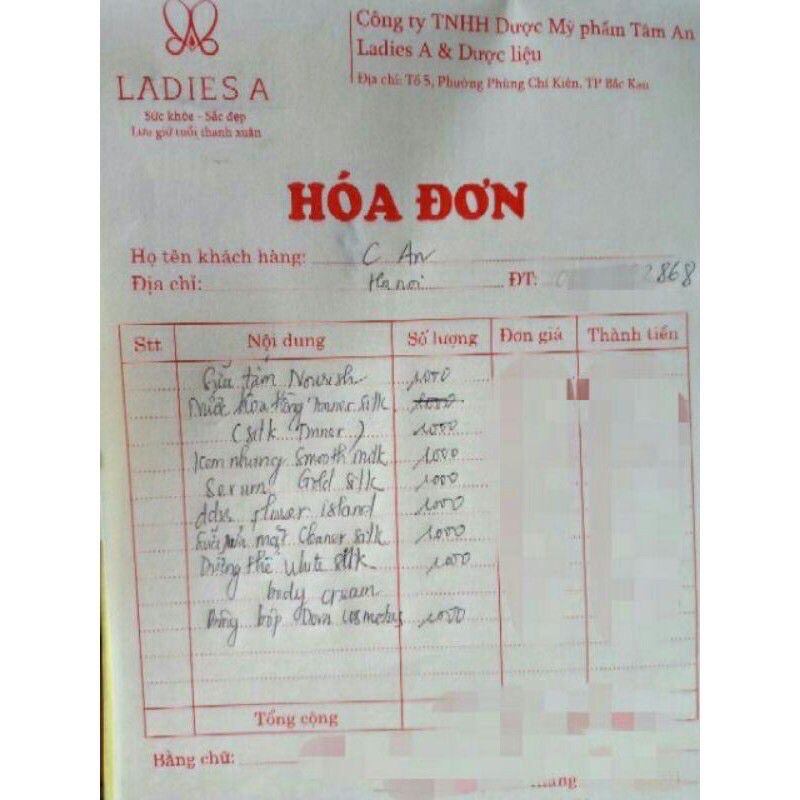 LADIES A
Sức khỏe - Sắc đẹp
Lưu giữ tuổi thanh xuân
Công ty TNHH Dược Mỹ phẩm Tâm An
Ladies A & Dược liệu
Địa chỉ: Tổ 5, Phường Phùng Chí Kiên, TP Bắc Kạn
HÓA ĐƠN
Họ tên khách hàng: C An
Địa chỉ: Hanoi ĐT: 2868
Stt Nội dung Số lượng Đơn giá Thành tiền
Sữa tắm Nourish 1000
Nước hoa hồng silk 1000
(silk Tonner) 1000
Kem nhung Smooth milk 1000
Serum Gold silk 1000
ddvs flower island 1000
rửa mặt Cleaner silk 1000
Dưỡng thể White silk 1000
body cream
Bông bốp Dora cosmetics 1000
Tổng cộng
Bằng chữ:
tháng